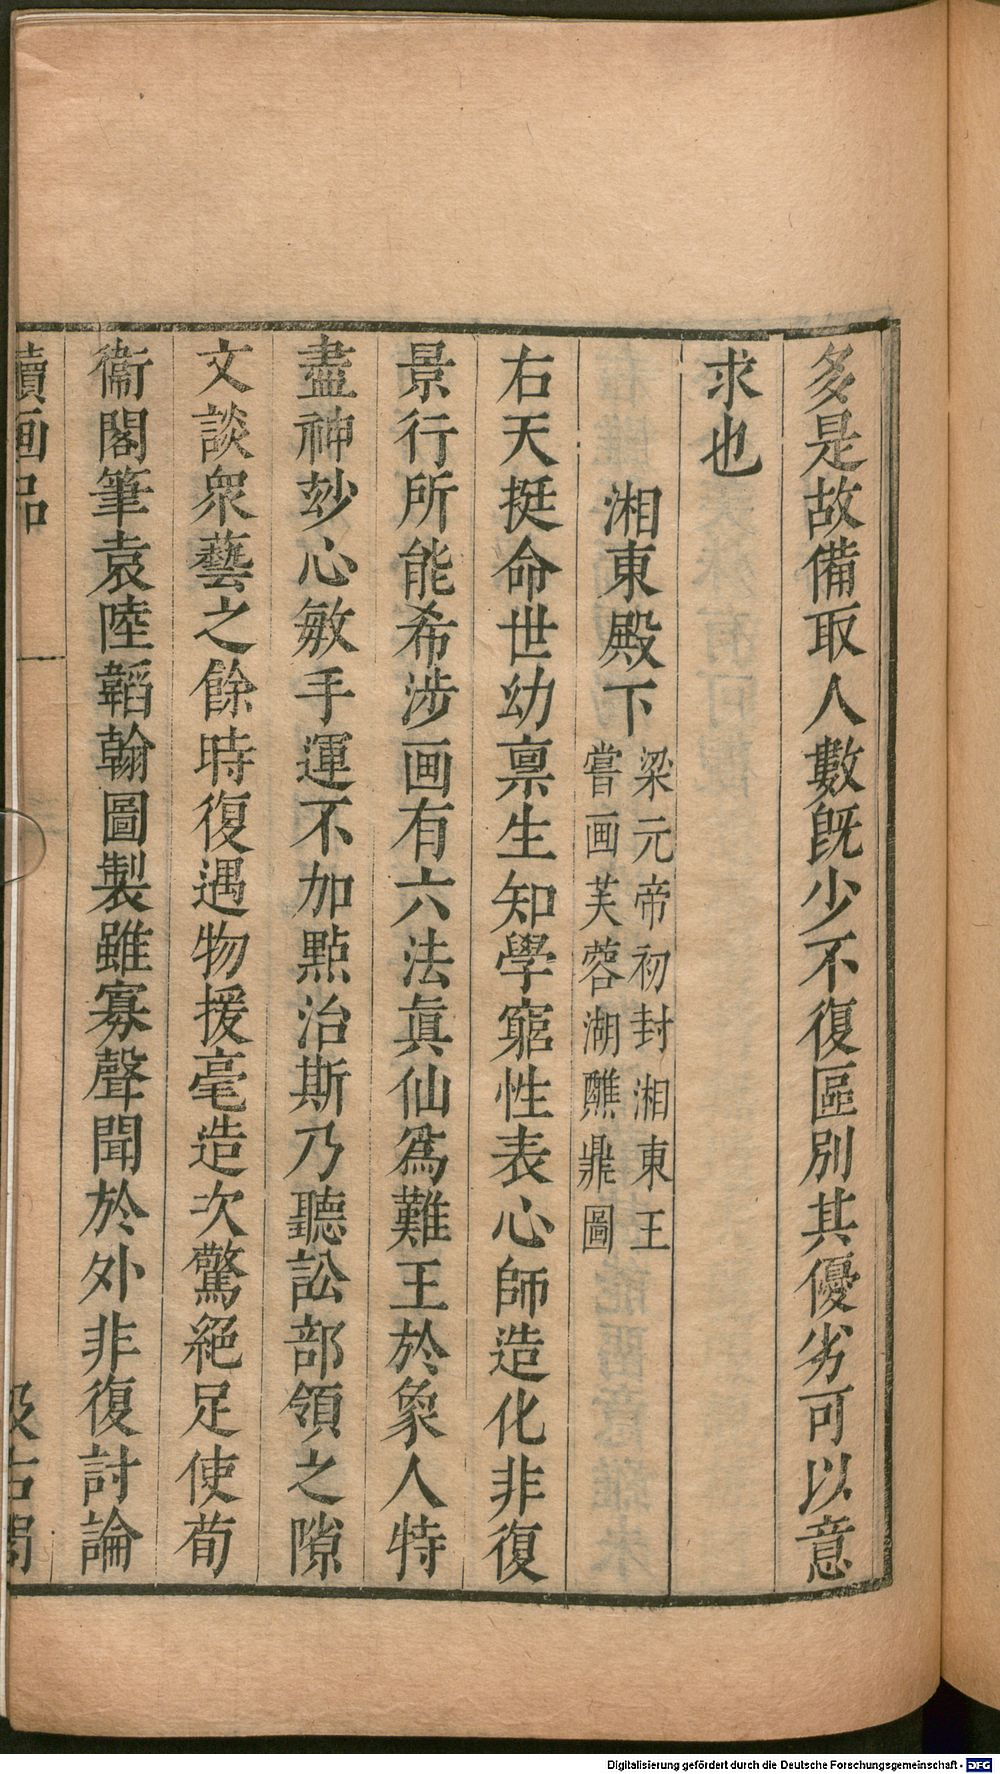 多是故備取人數既少不復區別其優劣可以意
求也
湘東殿下
梁元帝初封湘東王
嘗画芙蓉湖醮鼎圖
右天挺命世幼禀生知學窮性表心師造化非復
景行所能希涉画有六法眞仙爲難王於象人特
盡神玅心敏手運不加點治斯乃聽訟部領之隙
文談衆藝之餘時復遇物援毫造次驚絕足使荀
衞閣筆袁陸韜翰圖製雖寡聲聞於外非復討論
續画品 一 汲古閣
Digitalisierung gefördert durch die Deutsche Forschungsgemeinschaft - DFG